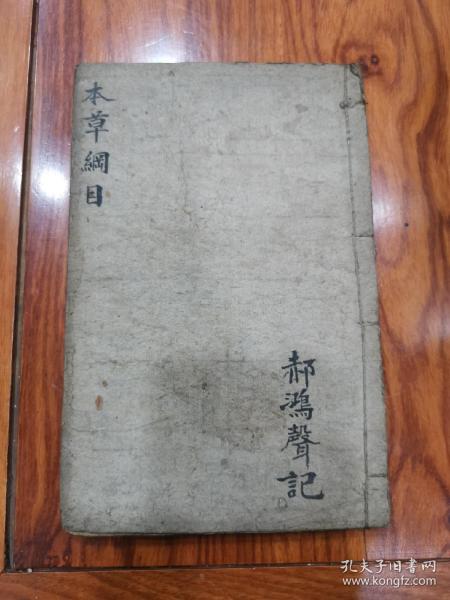 本草綱目
郝鴻聲記
孔夫子旧书网
www.kongfz.com